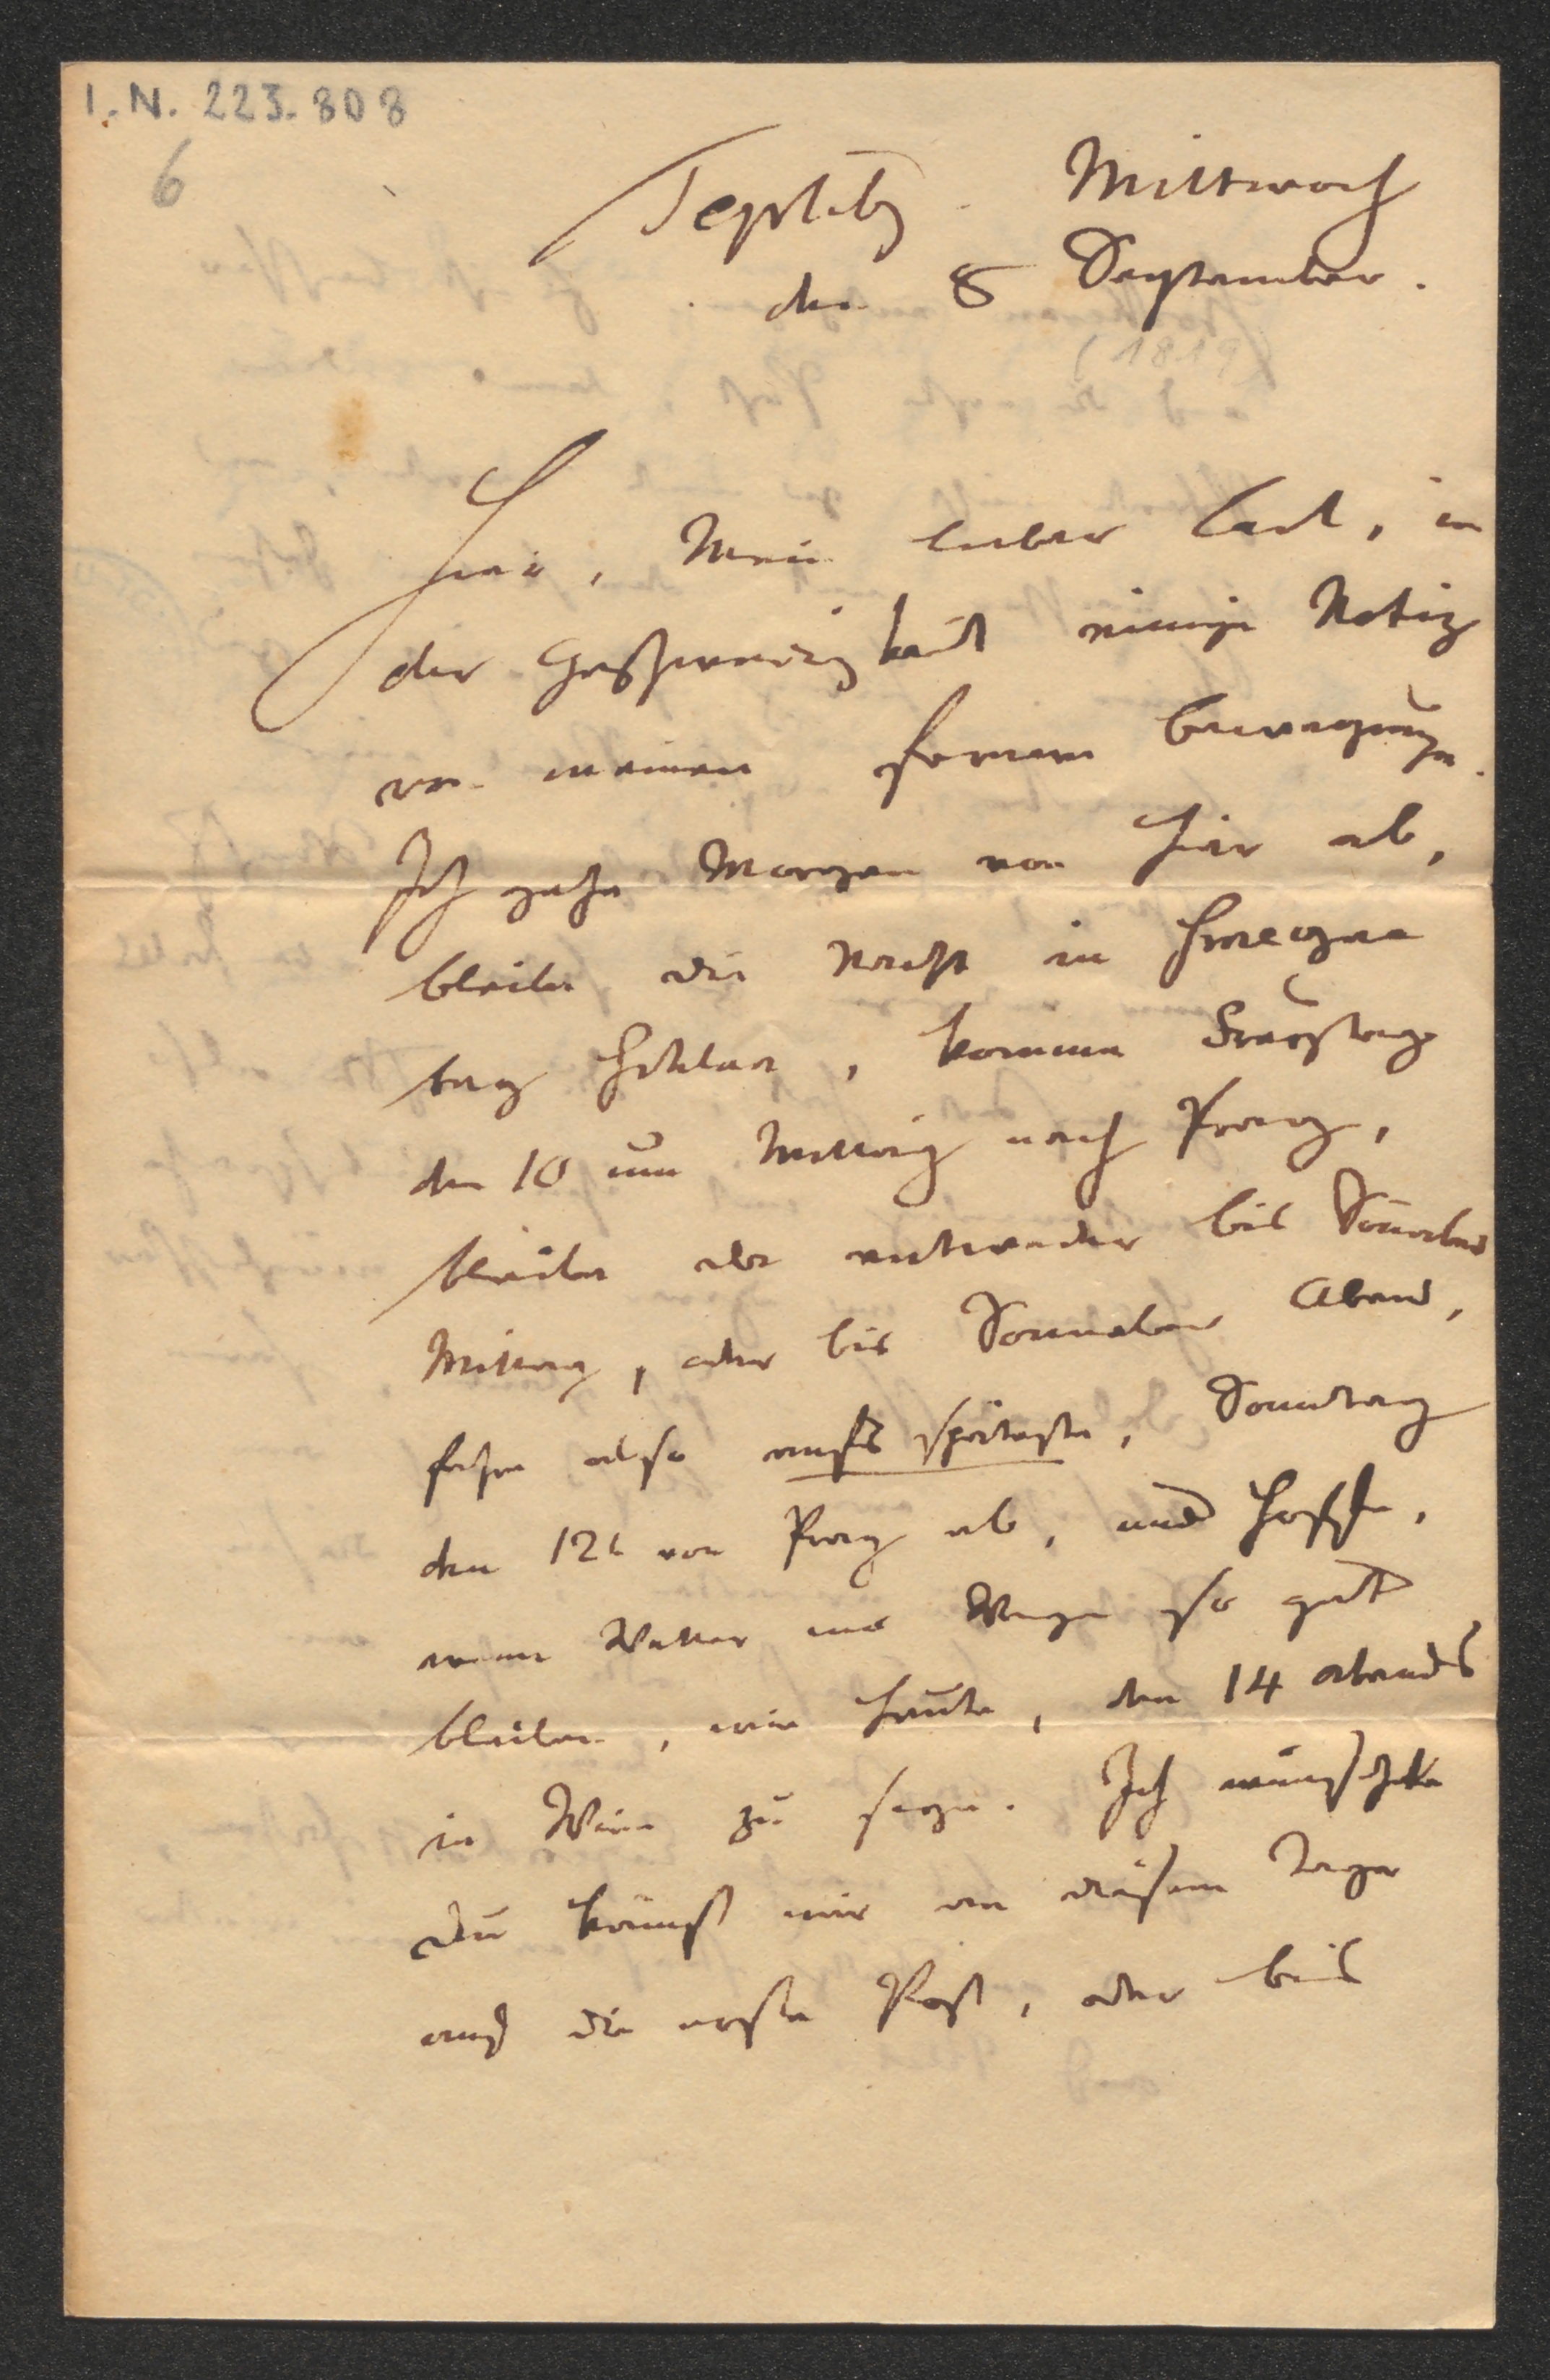 I. N. 223.808
6
Teplitz. Mittwoch
den 8 September.
(1819)
Hier, Mein lieber Carl, in
der Geschwindigkeit einige Notiz
von meinen fernern Bewegungen.
Ich gehe Morgen von hier ab,
bleibe die Nacht in
, komme Freystag
den 10 um Mittag nach Prag,
bleibe da entweder bis Sonnabend
Mittag, oder bis Sonnabend Abend,
fahre also aufs späteste, Sonntag
den 12t von Prag ab, und hoffe,
wenn Wetter und Wege so gut
bleiben, wie heute, den 14 abends
in Wien zu seyn. Ich wünschte
Du kämst mir an diesem Tage
auf die erste Post, oder bis